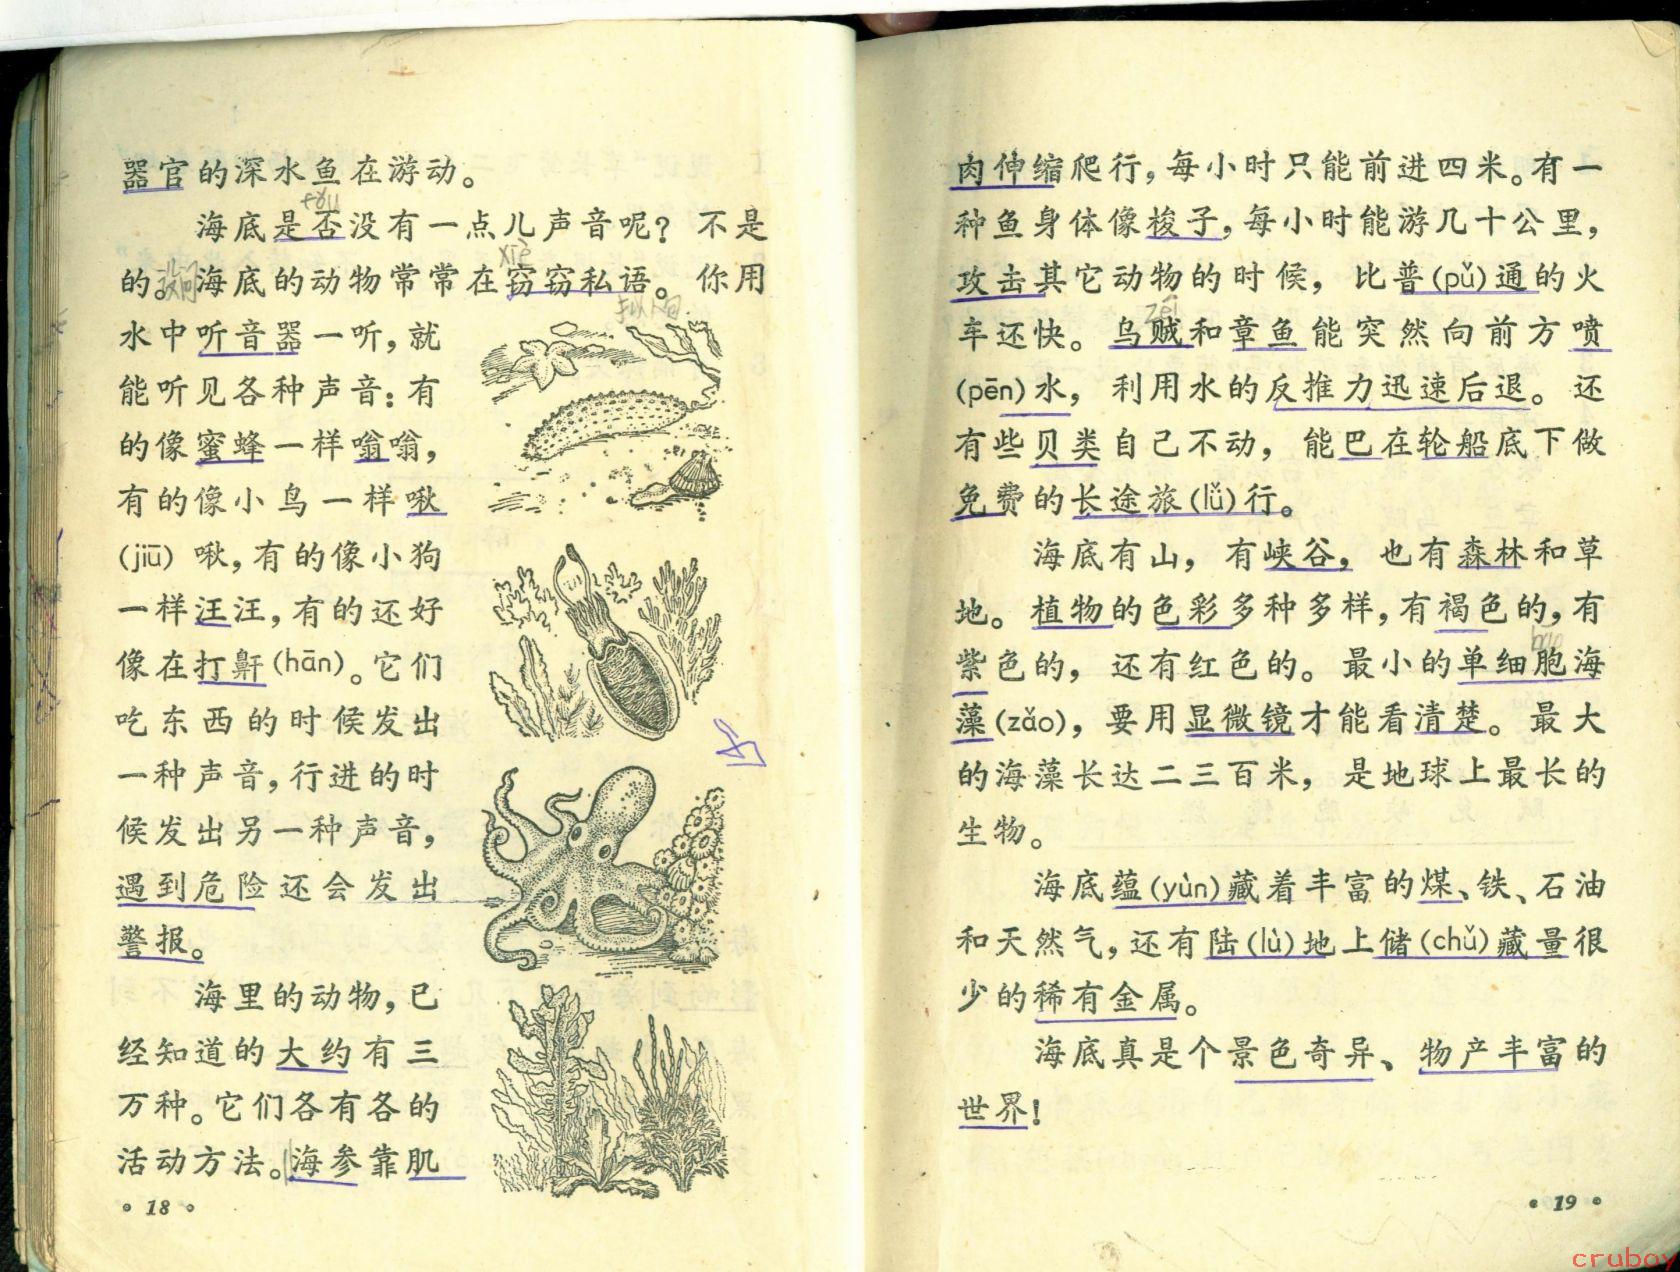 器官的深水鱼在游动。
fǒu
海底是否没有一点儿声音呢？不是
xiè
的。设问海底的动物常常在窃窃私语。你用
拟人句
水中听音器一听，就
能听见各种声音：有
的像蜜蜂一样嗡嗡，
有的像小鸟一样啾
(jiū) 啾，有的像小狗
一样汪汪，有的还好
像在打鼾(hān)。它们
吃东西的时候发出
一种声音，行进的时
候发出另一种声音，
遇到危险还会发出
警报。
海里的动物，已
经知道的大约有三
万种。它们各有各的
活动方法。海参靠肌
18
肉伸缩爬行，每小时只能前进四米。有一
种鱼身体像梭子，每小时能游几十公里，
攻击其它动物的时候，比普(pǔ)通的火
zéi
车还快。乌贼和章鱼能突然向前方喷
(pēn)水，利用水的反推力迅速后退。还
有些贝类自己不动，能巴在轮船底下做
免费的长途旅(lǚ)行。
海底有山，有峡谷，也有森林和草
地。植物的色彩多种多样，有褐色的，有
bāo
紫色的，还有红色的。最小的单细胞海
藻(zǎo)，要用显微镜才能看清楚。最大
的海藻长达二三百米，是地球上最长的
生物。
海底蕴(yùn)藏着丰富的煤、铁、石油
和天然气，还有陆(lù)地上储(chǔ)藏量很
少的稀有金属。
海底真是个景色奇异、物产丰富的
世界！
19
cruboy